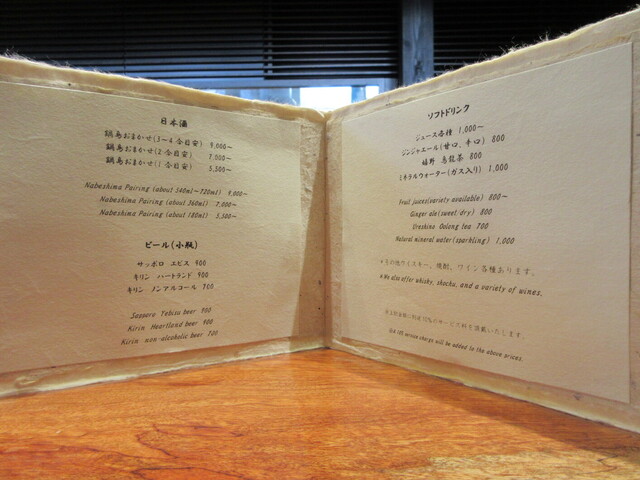 日本酒
鍋島おまかせ(3~4合目安) 9,000~
鍋島おまかせ(2合目安) 7,000~
鍋島おまかせ(1合目安) 5,500~
Nabeshima Pairing (about 540ml~720ml) 9,000~
Nabeshima Pairing (about 360ml) 7,000~
Nabeshima Pairing (about 180ml) 5,500~
ビール(小瓶)
サッポロ エビス 900
キリン ハートランド 900
キリン ノンアルコール 700
Sapporo Yebisu beer 900
Kirin Heartland beer 900
Kirin non-alcoholic beer 700
ソフトドリンク
ジュース各種 1,000~
ジンジャエール(甘口、辛口) 800
嬉野 烏龍茶 800
ミネラルウォーター(ガス入り) 1,000
Fruit juices(variety available) 800~
Ginger ale(sweet/dry) 800
Ureshino Oolong tea 700
Natural mineral water(sparkling) 1,000
※その他ウイスキー、焼酎、ワイン各種あります。
※We also offer whisky, shochu, and a variety of wines.
※上記金額に別途10%のサービス料を頂戴いたします。
※A 10% service charge will be added to the above prices.